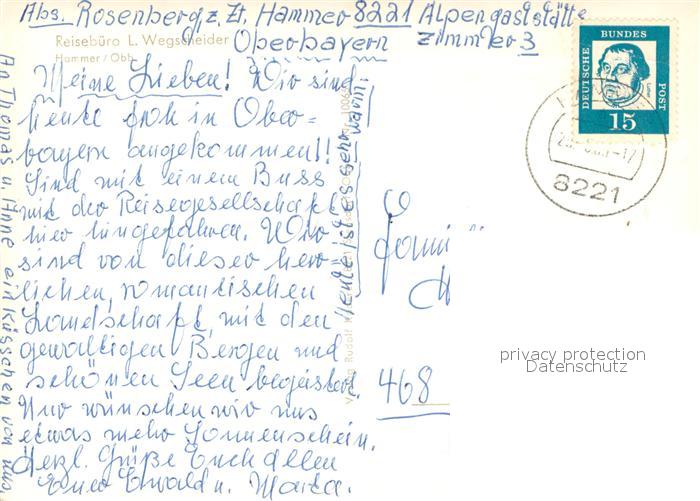 Abs. Rosenberg z. Zt. Hammer 8221 Alpengaststätte
Oberbayern Zimmer 3
Reisebüro L. Wegscheider
Hammer / Obb.
Meine Lieben! Wir sind
heute froh in Ober=
bayern angekommen!!
Sind mit einem Buss
mit der Reisegesellschaft
hier hingefahren. Wir
sind von dieser herr=
lichen, romantischen
Landschaft, mit den
gewaltigen Bergen und
schönen Seen begeistert.
Nur wünschen wir uns
etwas mehr Sonnenschein.
Herzl. Grüße Euch allen
Euer Ewald u. Marta.
Heute ist es sehr warm!
An Thomas u. Anne ein Küsschen von uns
Verlag Rudolf
Fami
468
DEUTSCHE BUNDES POST
Luther
15
8221
privacy protection
Datenschutz